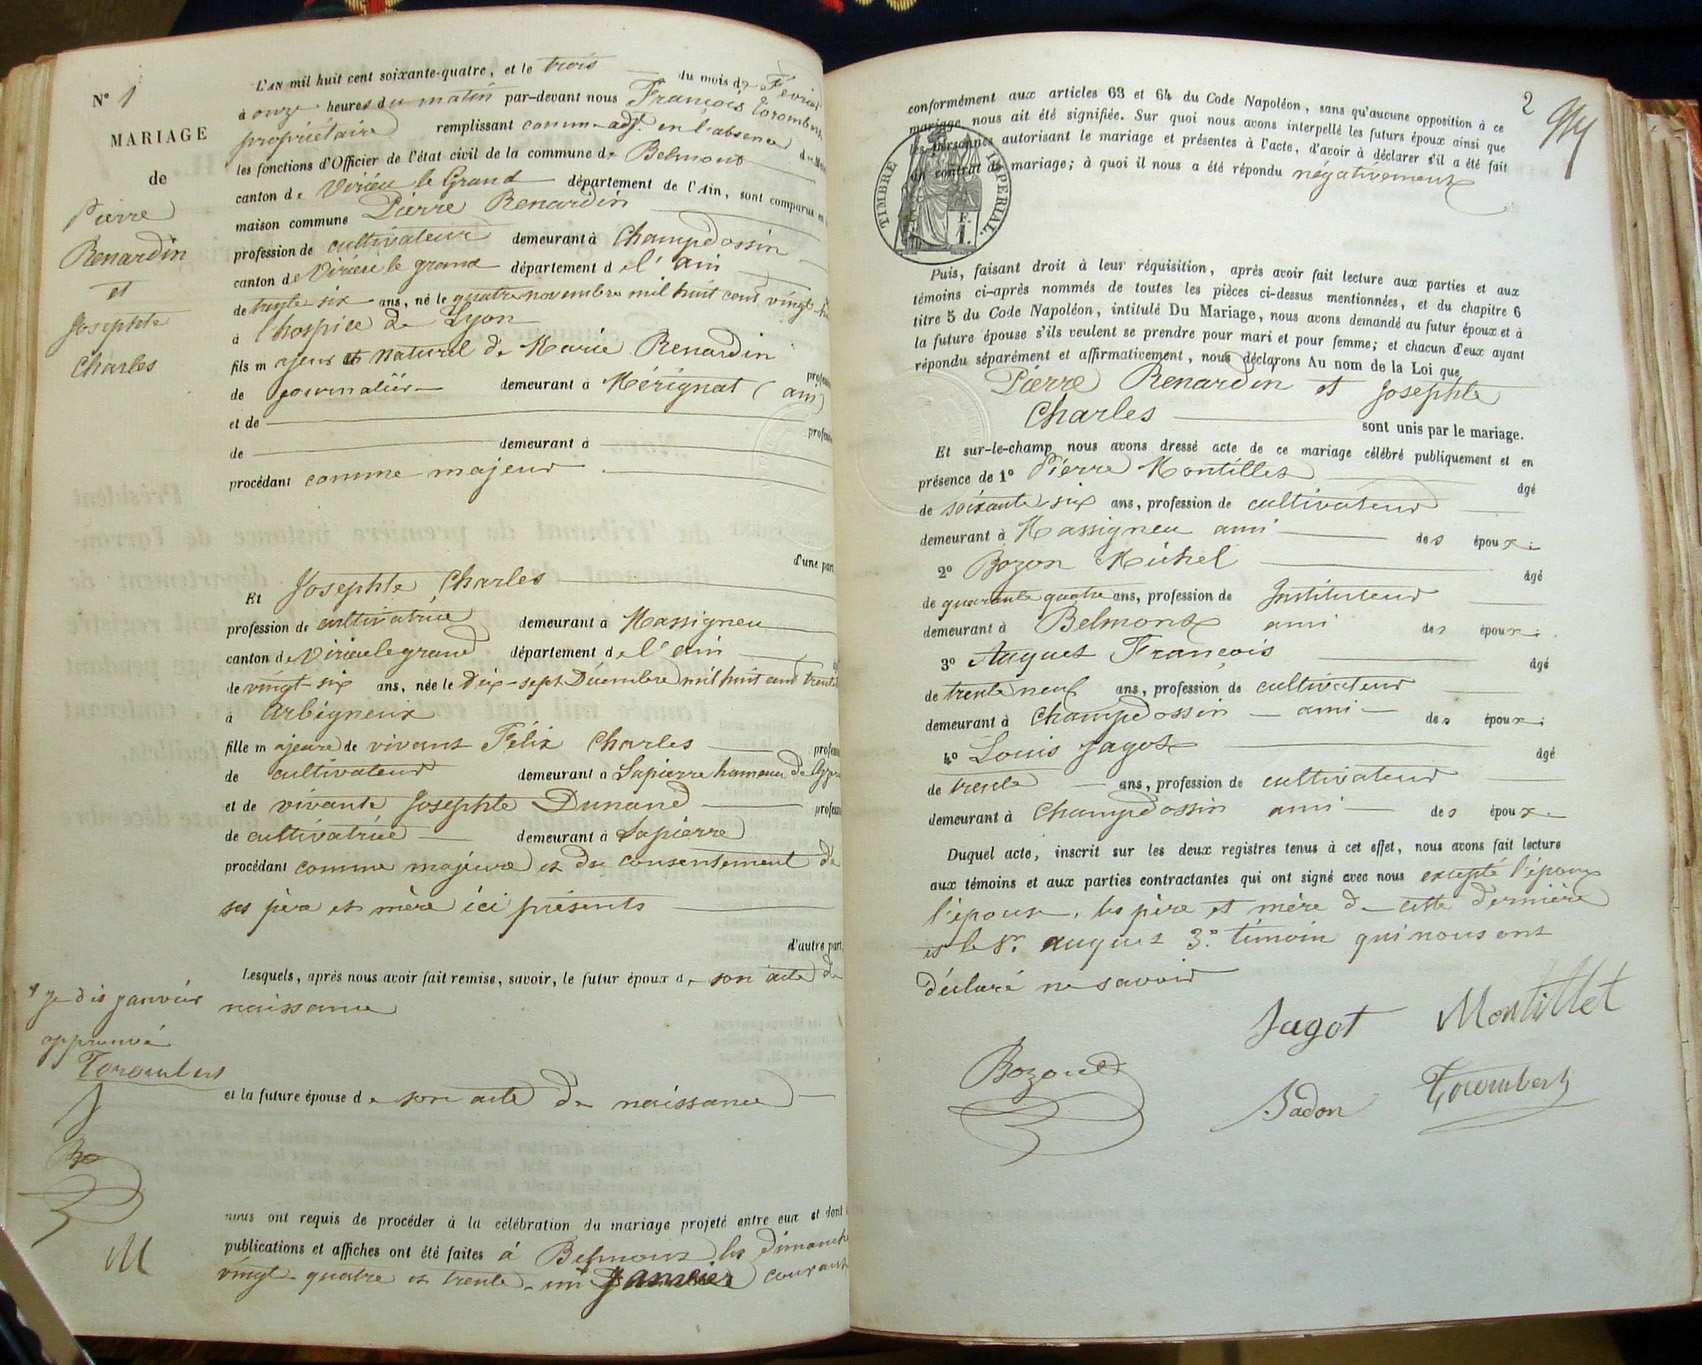 N° 1
MARIAGE
de
Pierre
Renardin
et
Josephte
Charles
L'AN mil huit cent soixante-quatre, et le trois du mois de Février
à onze heures du matin par-devant nous François Torombert
propriétaire remplissant comme adjt. en l'absence du
les fonctions d'Officier de l'état civil de la commune de Belmont
canton de Virieu le Grand département de l'Ain, sont comparus en
maison commune Pierre Renardin
profession de cultivateur demeurant à Champdossin
canton de Virieu le grand département de l'ain
de trente six ans, né le quatre novembre mil huit cent vingt
à l'hospice de Lyon
fils majeur et naturel de Marie Renardin
de journalièr demeurant à Mérignat (ain)
et de
de demeurant à
procédant comme majeur
d'une part
Et Josephte Charles
profession de cultivatrice demeurant à Massigneu
canton de Virieu le grand département de l'ain
de vingt-six ans, née le dix-sept Décembre mil huit cent trente
à Arbigneux
fille majeure de vivant Félix Charles
de cultivateur demeurant à Sapierre hameau de
et de vivante Josephte Dunand
de cultivatrice demeurant à Sapierre
procédant comme majeure et du consentement de
ses père et mère ici présents
d'autre part
Lesquels, après nous avoir fait remise, savoir, le futur époux de son acte de
naissance
et la future épouse de son acte de naissance
nous ont requis de procéder à la célébration du mariage projeté entre eux et dont
publications et affiches ont été faites à Belmont les dimanche
vingt-quatre et trente-un Janvier courant
je dis janvier
approuvé
Torombert
Bo
M
2
conformément aux articles 63 et 64 du Code Napoléon, sans qu'aucune opposition à ce
mariage nous ait été signifiée. Sur quoi nous avons interpellé les futurs époux ainsi que
les personnes autorisant le mariage et présentes à l'acte, d'avoir à déclarer s'il a été fait
un contrat de mariage; à quoi il nous a été répondu négativement
TIMBRE IMPERIAL
Puis, faisant droit à leur réquisition, après avoir fait lecture aux parties et aux
témoins ci-après nommés de toutes les pièces ci-dessus mentionnées, et du chapitre 6
titre 5 du Code Napoléon, intitulé Du Mariage, nous avons demandé au futur époux et à
la future épouse s'ils veulent se prendre pour mari et pour femme; et chacun d'eux ayant
répondu séparément et affirmativement, nous déclarons Au nom de la Loi que
Pierre Renardin et Josephte
Charles sont unis par le mariage.
Et sur-le-champ nous avons dressé acte de ce mariage célébré publiquement et en
présence de 1° Pierre Montillet âgé
de soixante-six ans, profession de cultivateur
demeurant à Massigneu ami des époux
2° Bozon Michel âgé
de quarante quatre ans, profession de Instituteur
demeurant à Belmont ami des époux
3° Auguet François âgé
de trente neuf ans, profession de cultivateur
demeurant à Champdossin ami des époux
4° Louis Jagot âgé
de trente ans, profession de cultivateur
demeurant à Champdossin ami des époux
Duquel acte, inscrit sur les deux registres tenus à cet effet, nous avons fait lecture
aux témoins et aux parties contractantes qui ont signé avec nous excepté l'époux
l'épouse, les père et mère de cette dernière
et le Sr. auguet 3e. témoin qui nous ont
déclaré ne savoir
Jagot Montillet
Bozon
Badon Torombert